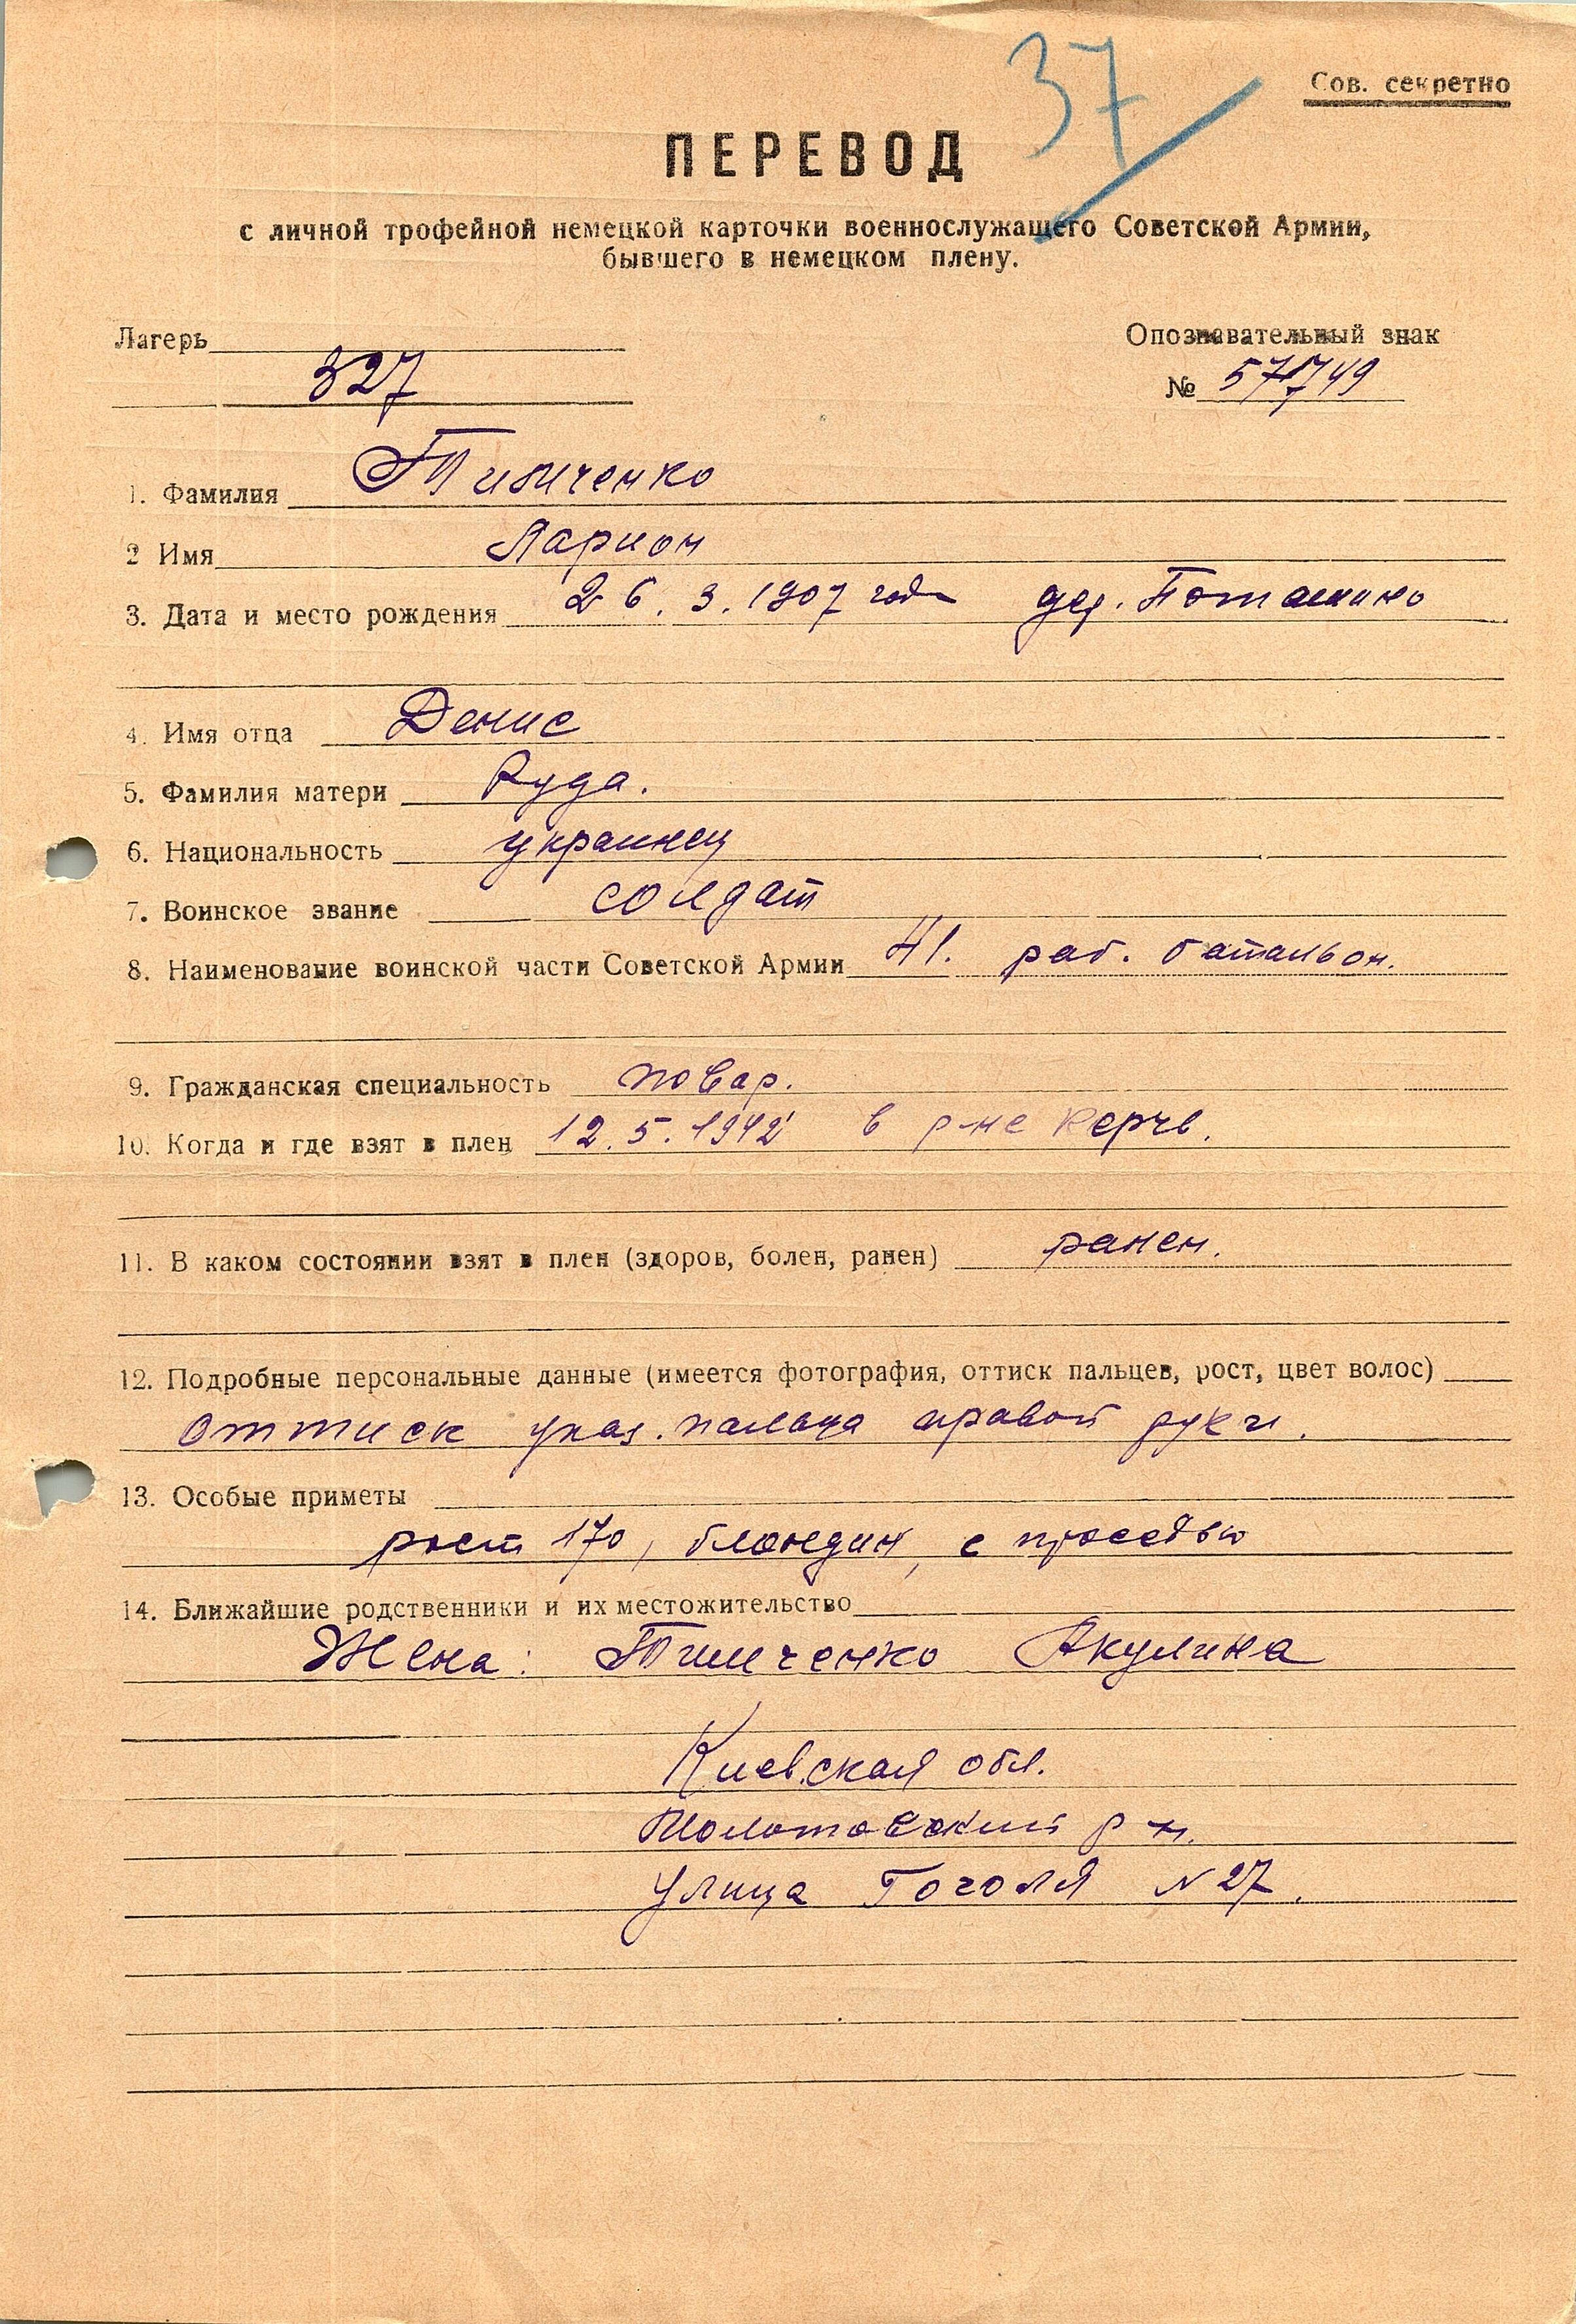 37
Сов. секретно
ПЕРЕВОД
с личной трофейной немецкой карточки военнослужащего Советской Армии,
бывшего в немецком плену.
Лагерь
327
Опознавательный знак
№ 571749
1. Фамилия Тимченко
2 Имя Ларион
3. Дата и место рождения 26. 3. 1907 года дер. Поташино
4. Имя отца Денис
5. Фамилия матери Руда.
6. Национальность украинец
7. Воинское звание солдат
8. Наименование воинской части Советской Армии 41. раб. батальон.
9. Гражданская специальность повар.
10. Когда и где взят в плен 12. 5. 1942 в р-не Керчь.
11. В каком состоянии взят в плен (здоров, болен, ранен) ранен.
12. Подробные персональные данные (имеется фотография, оттиск пальцев, рост, цвет волос)
оттиск указ. пальца правой руки.
13. Особые приметы
рост 170, блондин, с проседью
14. Ближайшие родственники и их местожительство
Жена: Тимченко Акулина
Киевская обл.
Молотовский р-н.
улица Гоголя N 27.